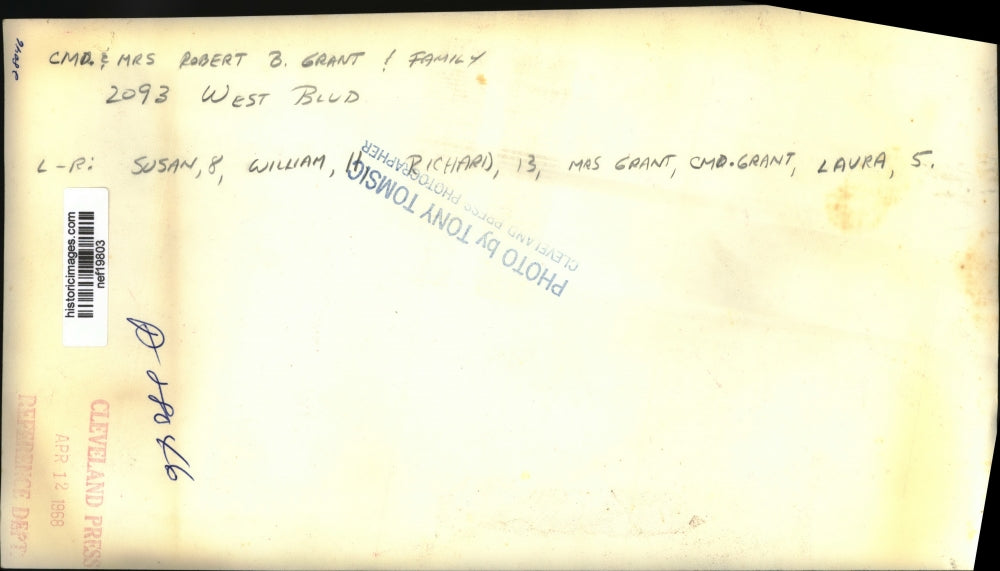 CMD. & MRS ROBERT B. GRANT & FAMILY
2093 WEST BLVD
L-R: SUSAN, 8, WILLIAM, 11, RICHARD, 13, MRS GRANT, CMD. GRANT, LAURA, 5.
PHOTO by TONY TOMSIC
CLEVELAND PRESS PHOTOGRAPHER
historicimages.com
nef19803
CLEVELAND PRESS
APR 12 1968
REFERENCE DEPT